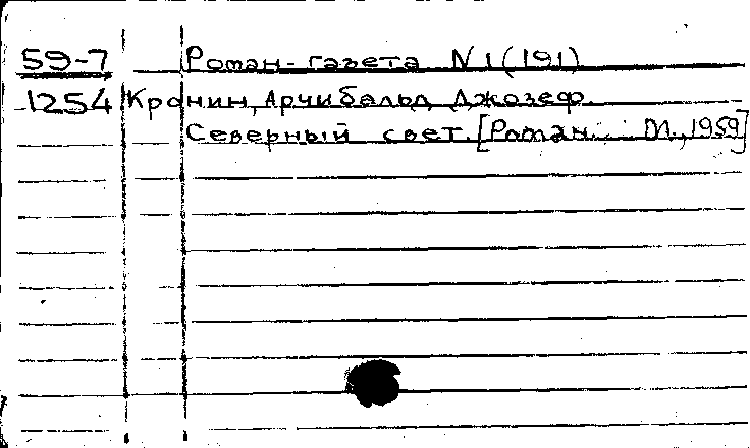 59-7 Роман-газета N 1 (191)
1254 Кронин, Арчибальд Джозеф.
Северный свет. [Роман. М., 1959]